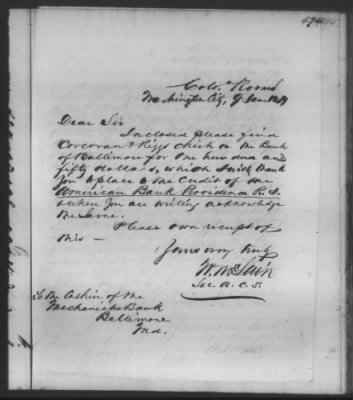 Colo. Rooms
Washington City, 9 Jan
Dear Sir
Inclosed please find
Corcoran & Riggs check on the Bank
of Baltimore for One hundred and
fifty dollars, which I will thank
you to place to the credit of the
American Bank Providence R. I.
& when you are writing acknowledge
the same.
Please own receipt of
this —
Yours very truly
W. McLain
Sec. A. C. S.
To the Cashier of the
Mechanics Bank
Baltimore
Md.